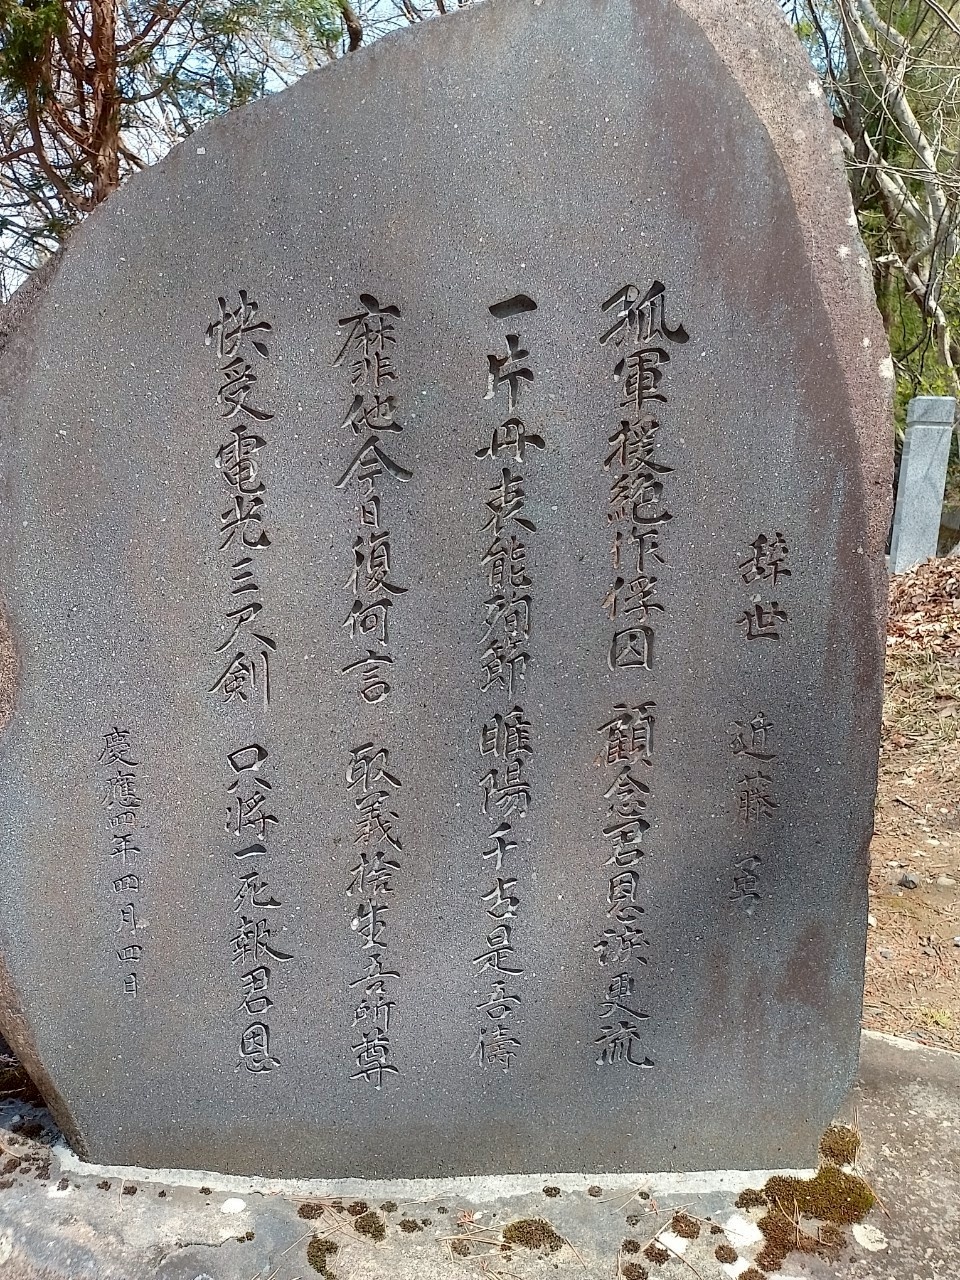 辞世 近藤 勇
孤軍援絶作俘囚 顧念君恩涙更流
一片丹衷能殉節 睢陽千古是吾儔
靡他今日復何言 取義捨生吾所尊
快受電光三尺剣 只将一死報君恩
慶應四年四月四日